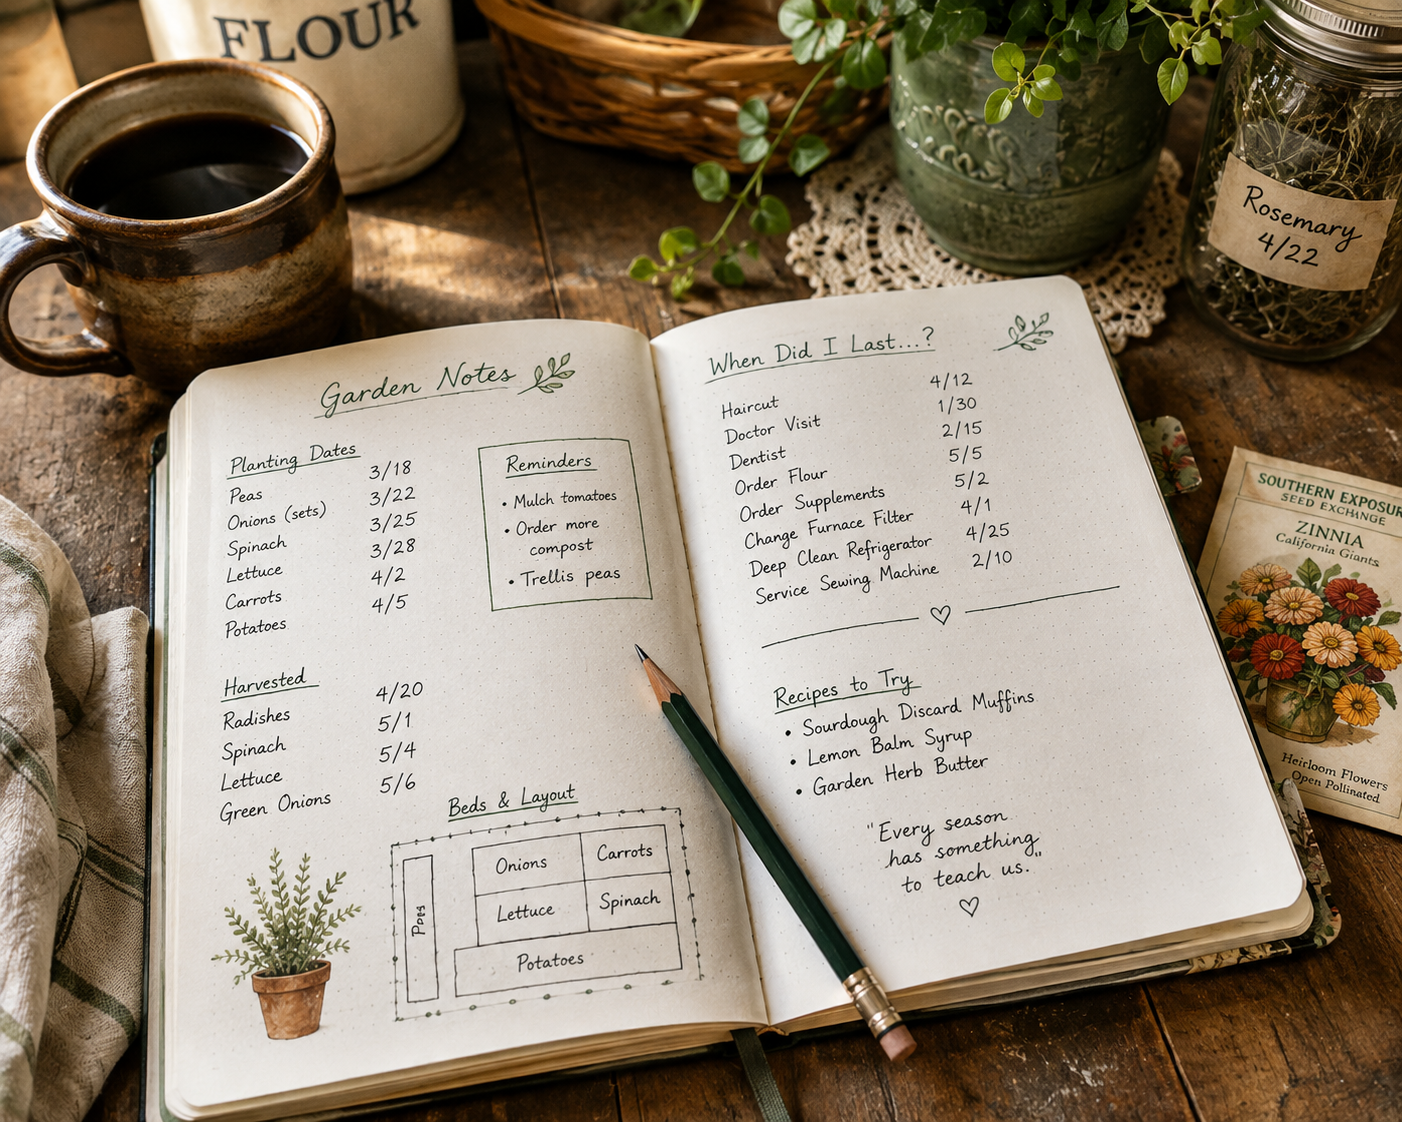 FLOUR
Rosemary
4/22
Garden Notes
Planting Dates
Peas 3/18
Onions (sets) 3/22
Spinach 3/25
Lettuce 3/28
Carrots 4/2
Potatoes 4/5
Reminders
• Mulch tomatoes
• Order more
compost
• Trellis peas
Harvested
Radishes 4/20
Spinach 5/1
Lettuce 5/4
Green Onions 5/6
Beds & Layout
Onions
Carrots
Lettuce
Spinach
Potatoes
When Did I Last...?
Haircut 4/12
Doctor Visit 1/30
Dentist 2/15
Order Flour 5/5
Order Supplements 5/2
Change Furnace Filter 4/1
Deep Clean Refrigerator 4/25
Service Sewing Machine 2/10
Recipes to Try
• Sourdough Discard Muffins
• Lemon Balm Syrup
• Garden Herb Butter
"Every season
has something
to teach us."
SOUTHERN EXPOSUR
SEED EXCHANGE
ZINNIA
California Giants
Heirloom Flowers
Open Pollinated